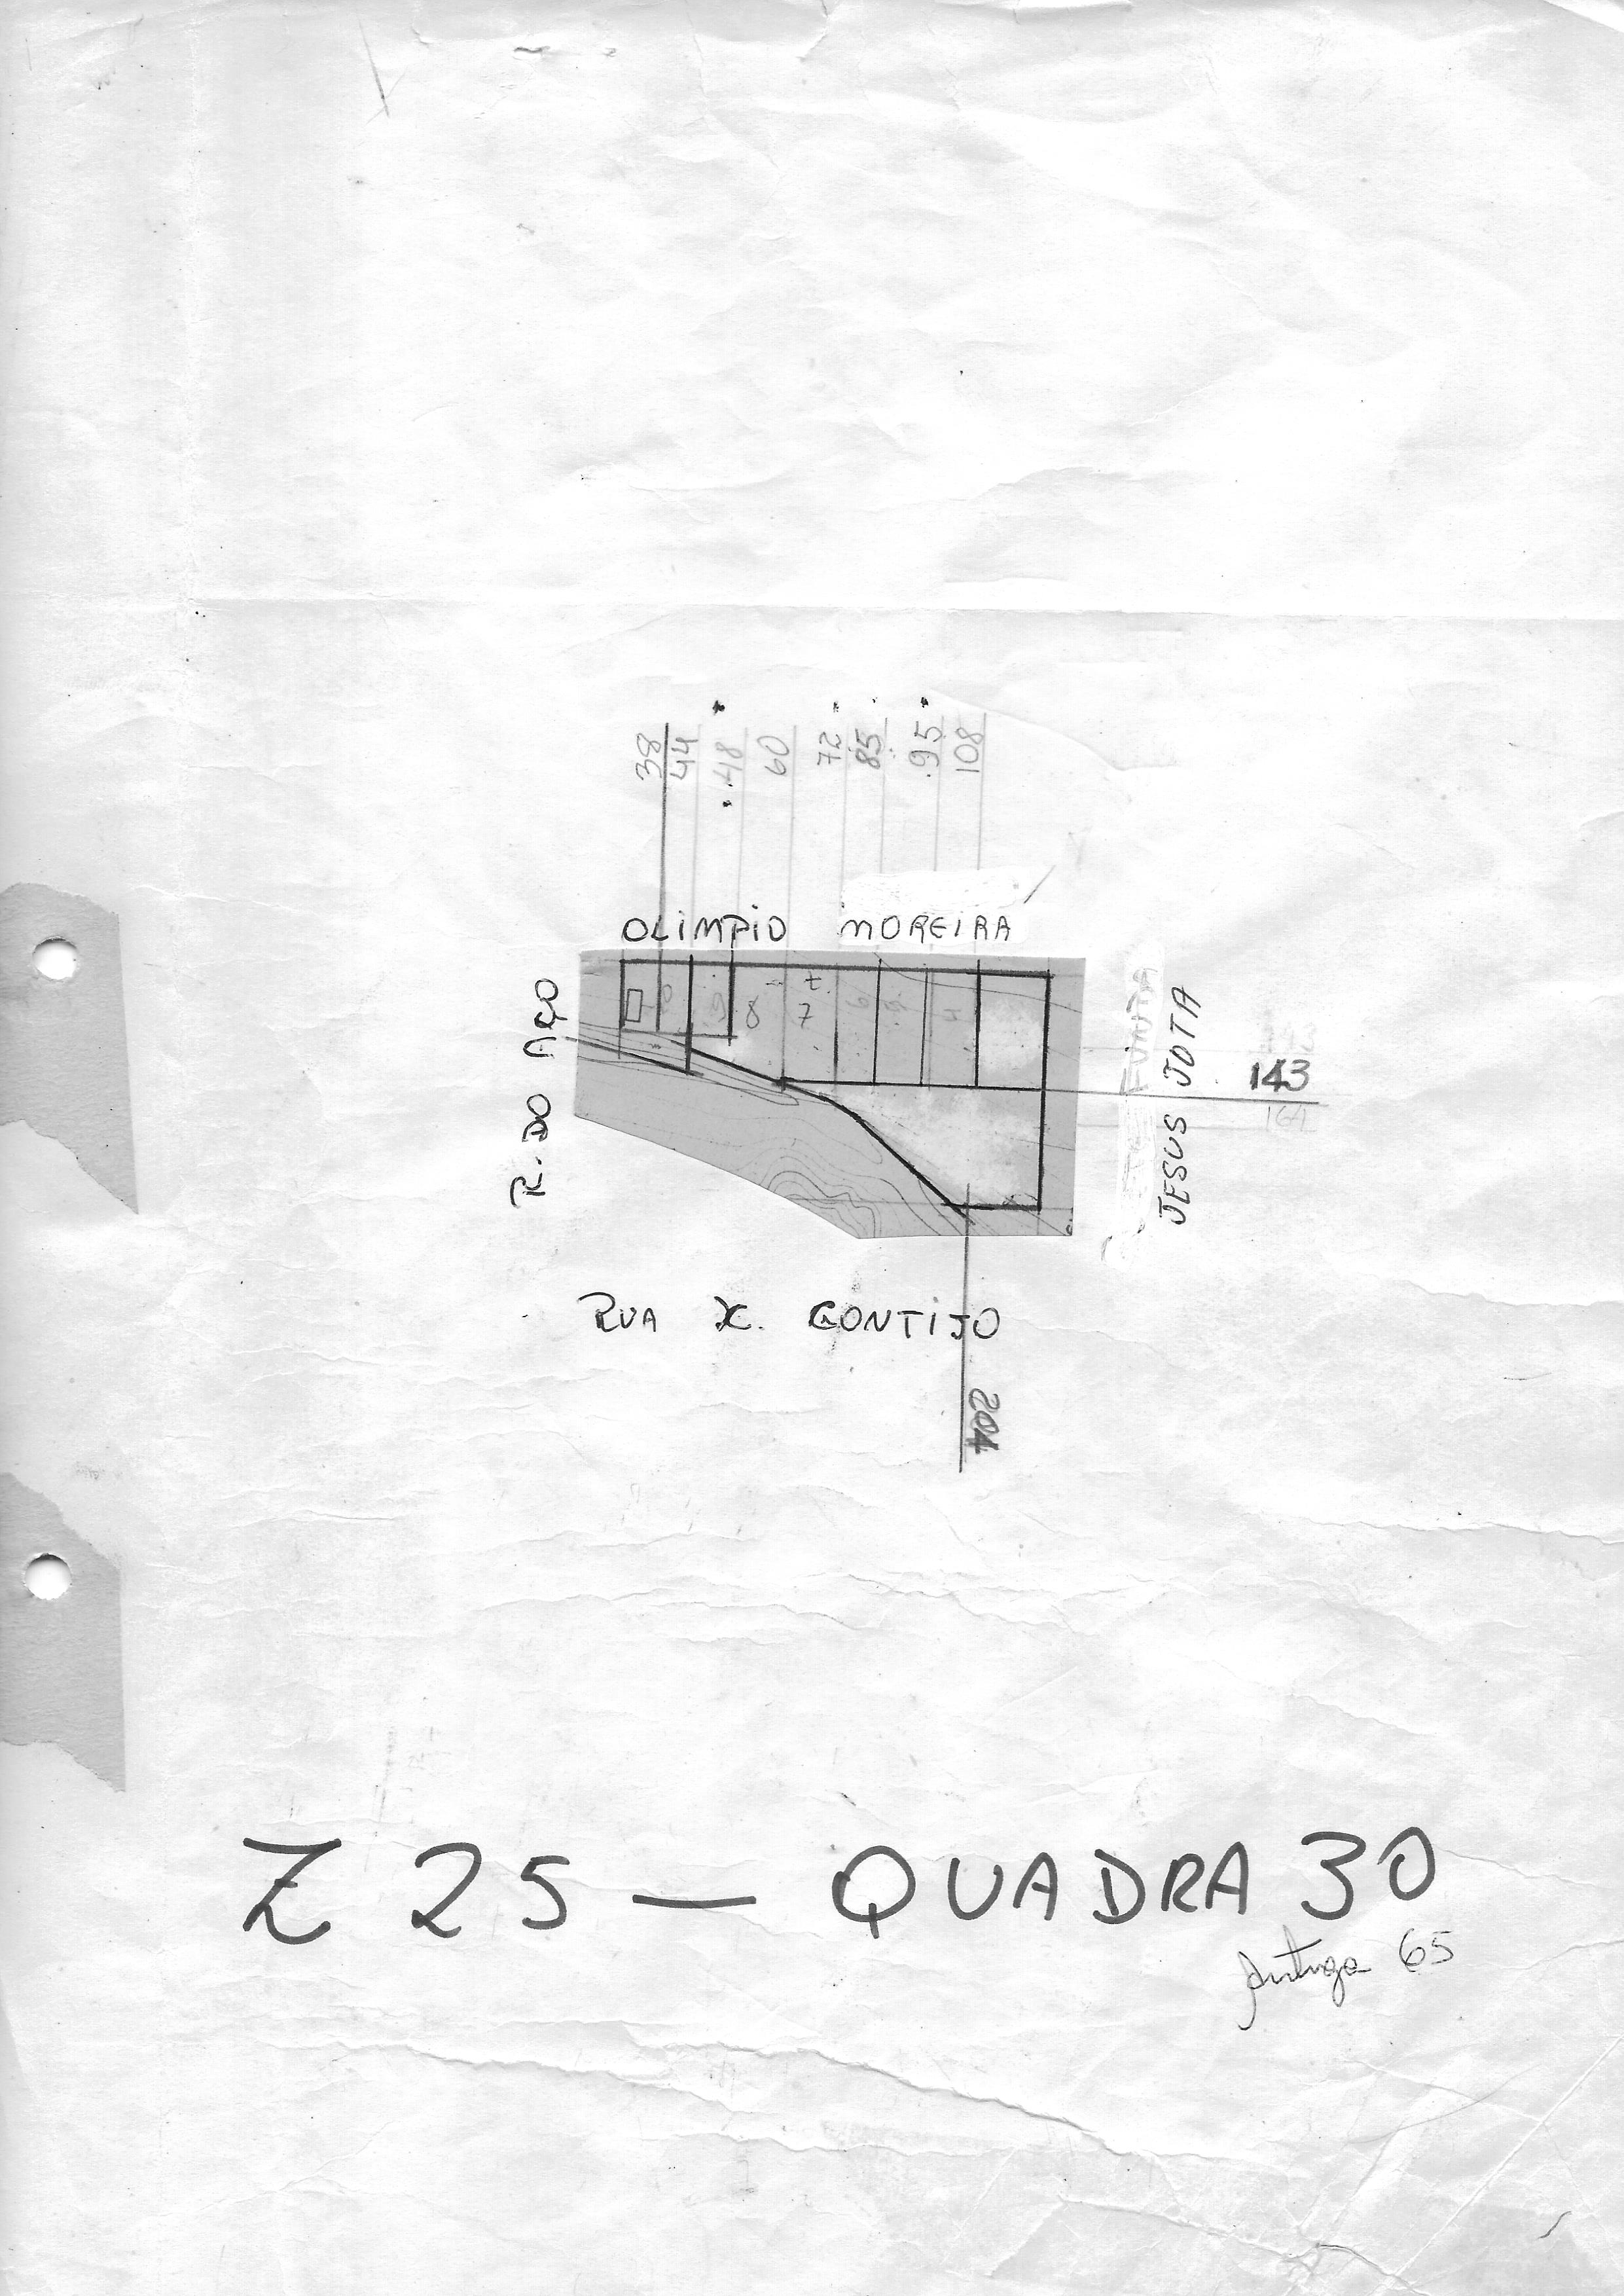 38
44
48
60
72
85
95
108
OLIMPIO MOREIRA
R. DO AÇO
8
7
JESUS JOTA
143
164
RUA X. GONTIJO
204
Z 25 — QUADRA 30
Antiga 65